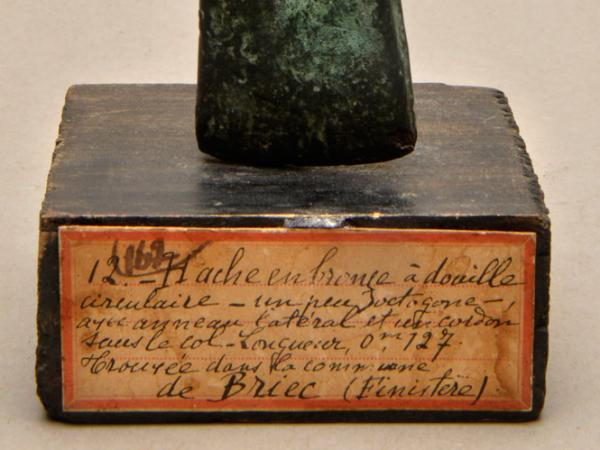 168
12. - Hache en bronze à douille
circulaire - un peu octogone -,
avec anneau latéral et un cordon
sous le col - Longueur, 0,m 127.
Trouvée dans la commune
de Briec (Finistère)